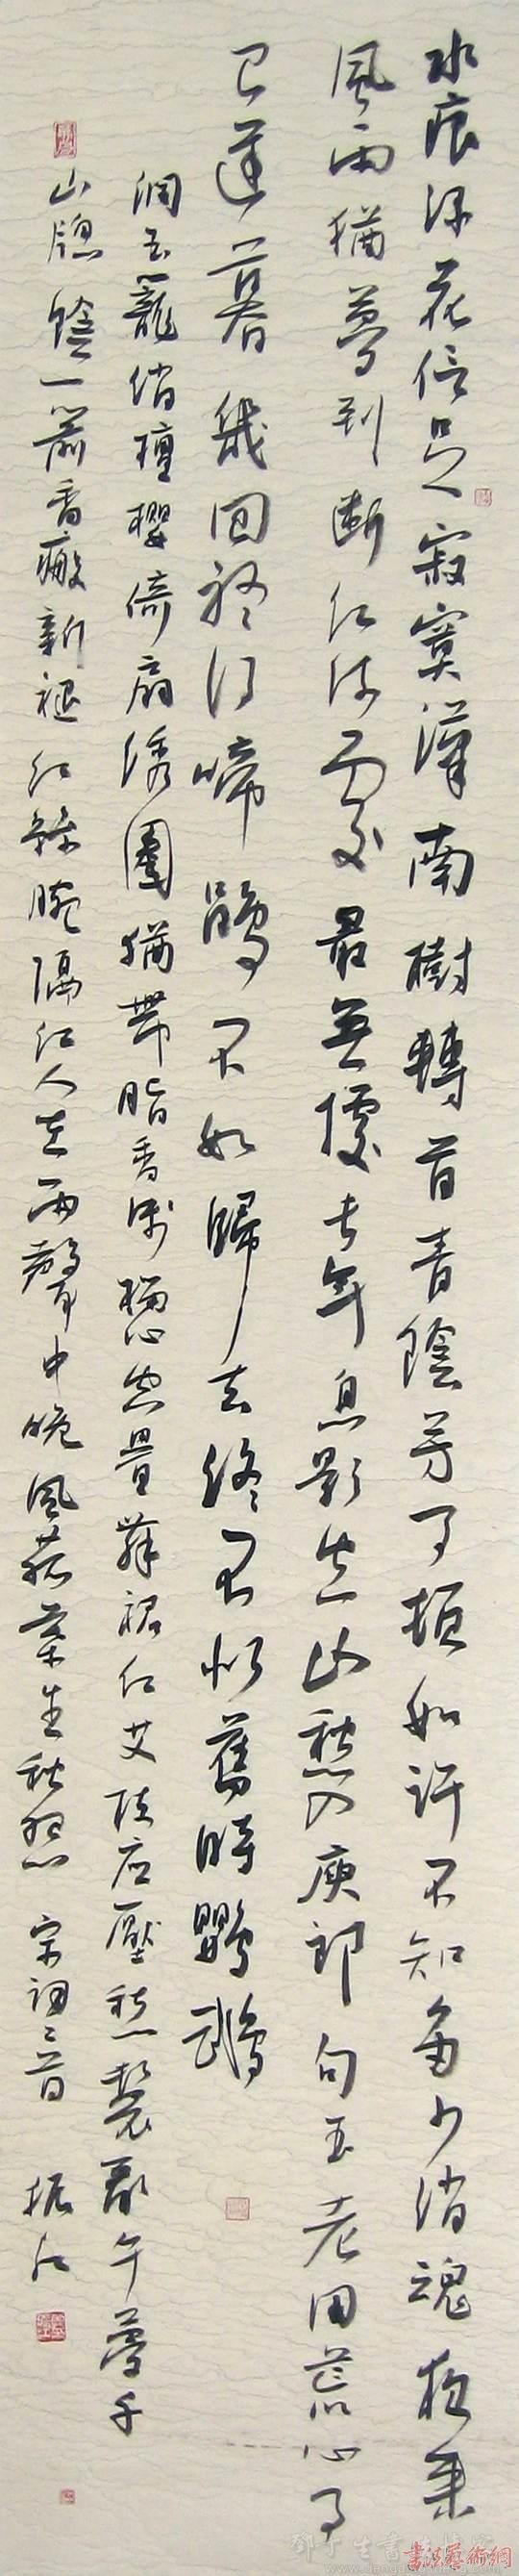 水痕深花信足寂寞漢南樹轉首青陰芳事頓如許不知多少消魂夜來
風雨猶夢到斷紅流處最無據長年息影空山愁入庾郎句玉老田荒心事
已遲暮幾回聽得啼鵑不如歸去終不似舊時鸚鵡
潤玉籠綃檀櫻倚扇繡圈猶帶脂香淺榴心空疊舞裙紅艾枝应壓愁鬟亂午夢千
山窗陰一箭香瘢新褪紅絲腕隔江人在雨聲中晚風菰葉生秋怨 宋詞二首 振江
書法藝術網